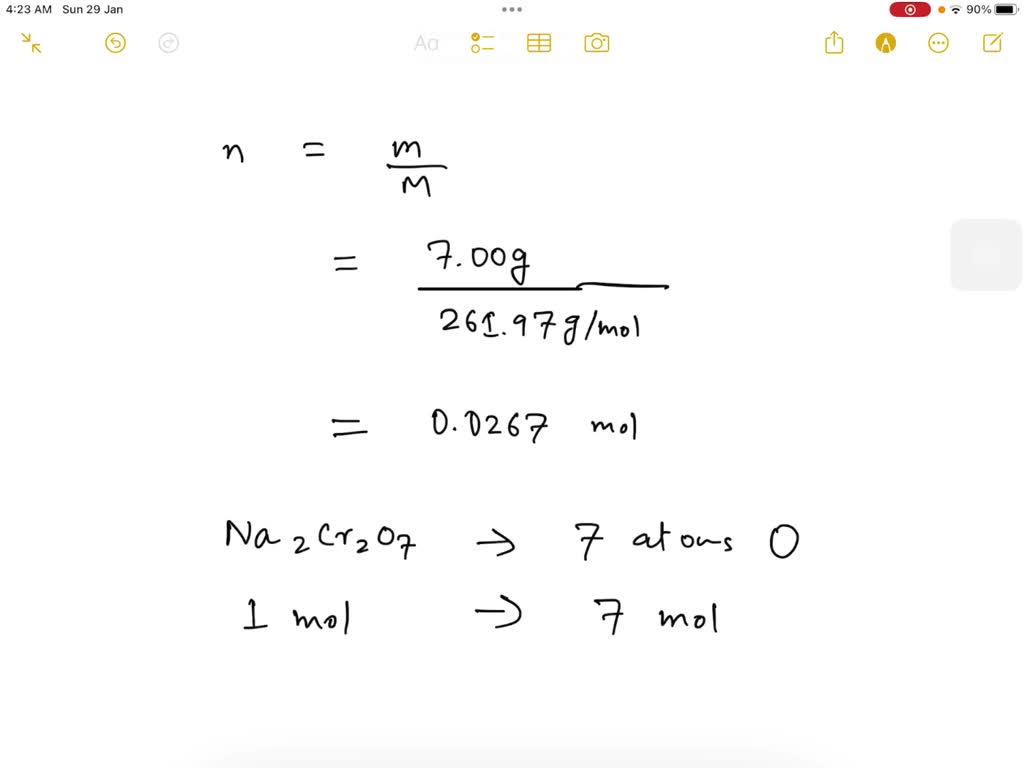 4:23 AM Sun 29 Jan
90%
Aa
n = m/M
= 7.00g / 261.97g/mol
= 0.0267 mol
Na₂Cr₂O₇ → 7 atoms O
1 mol → 7 mol